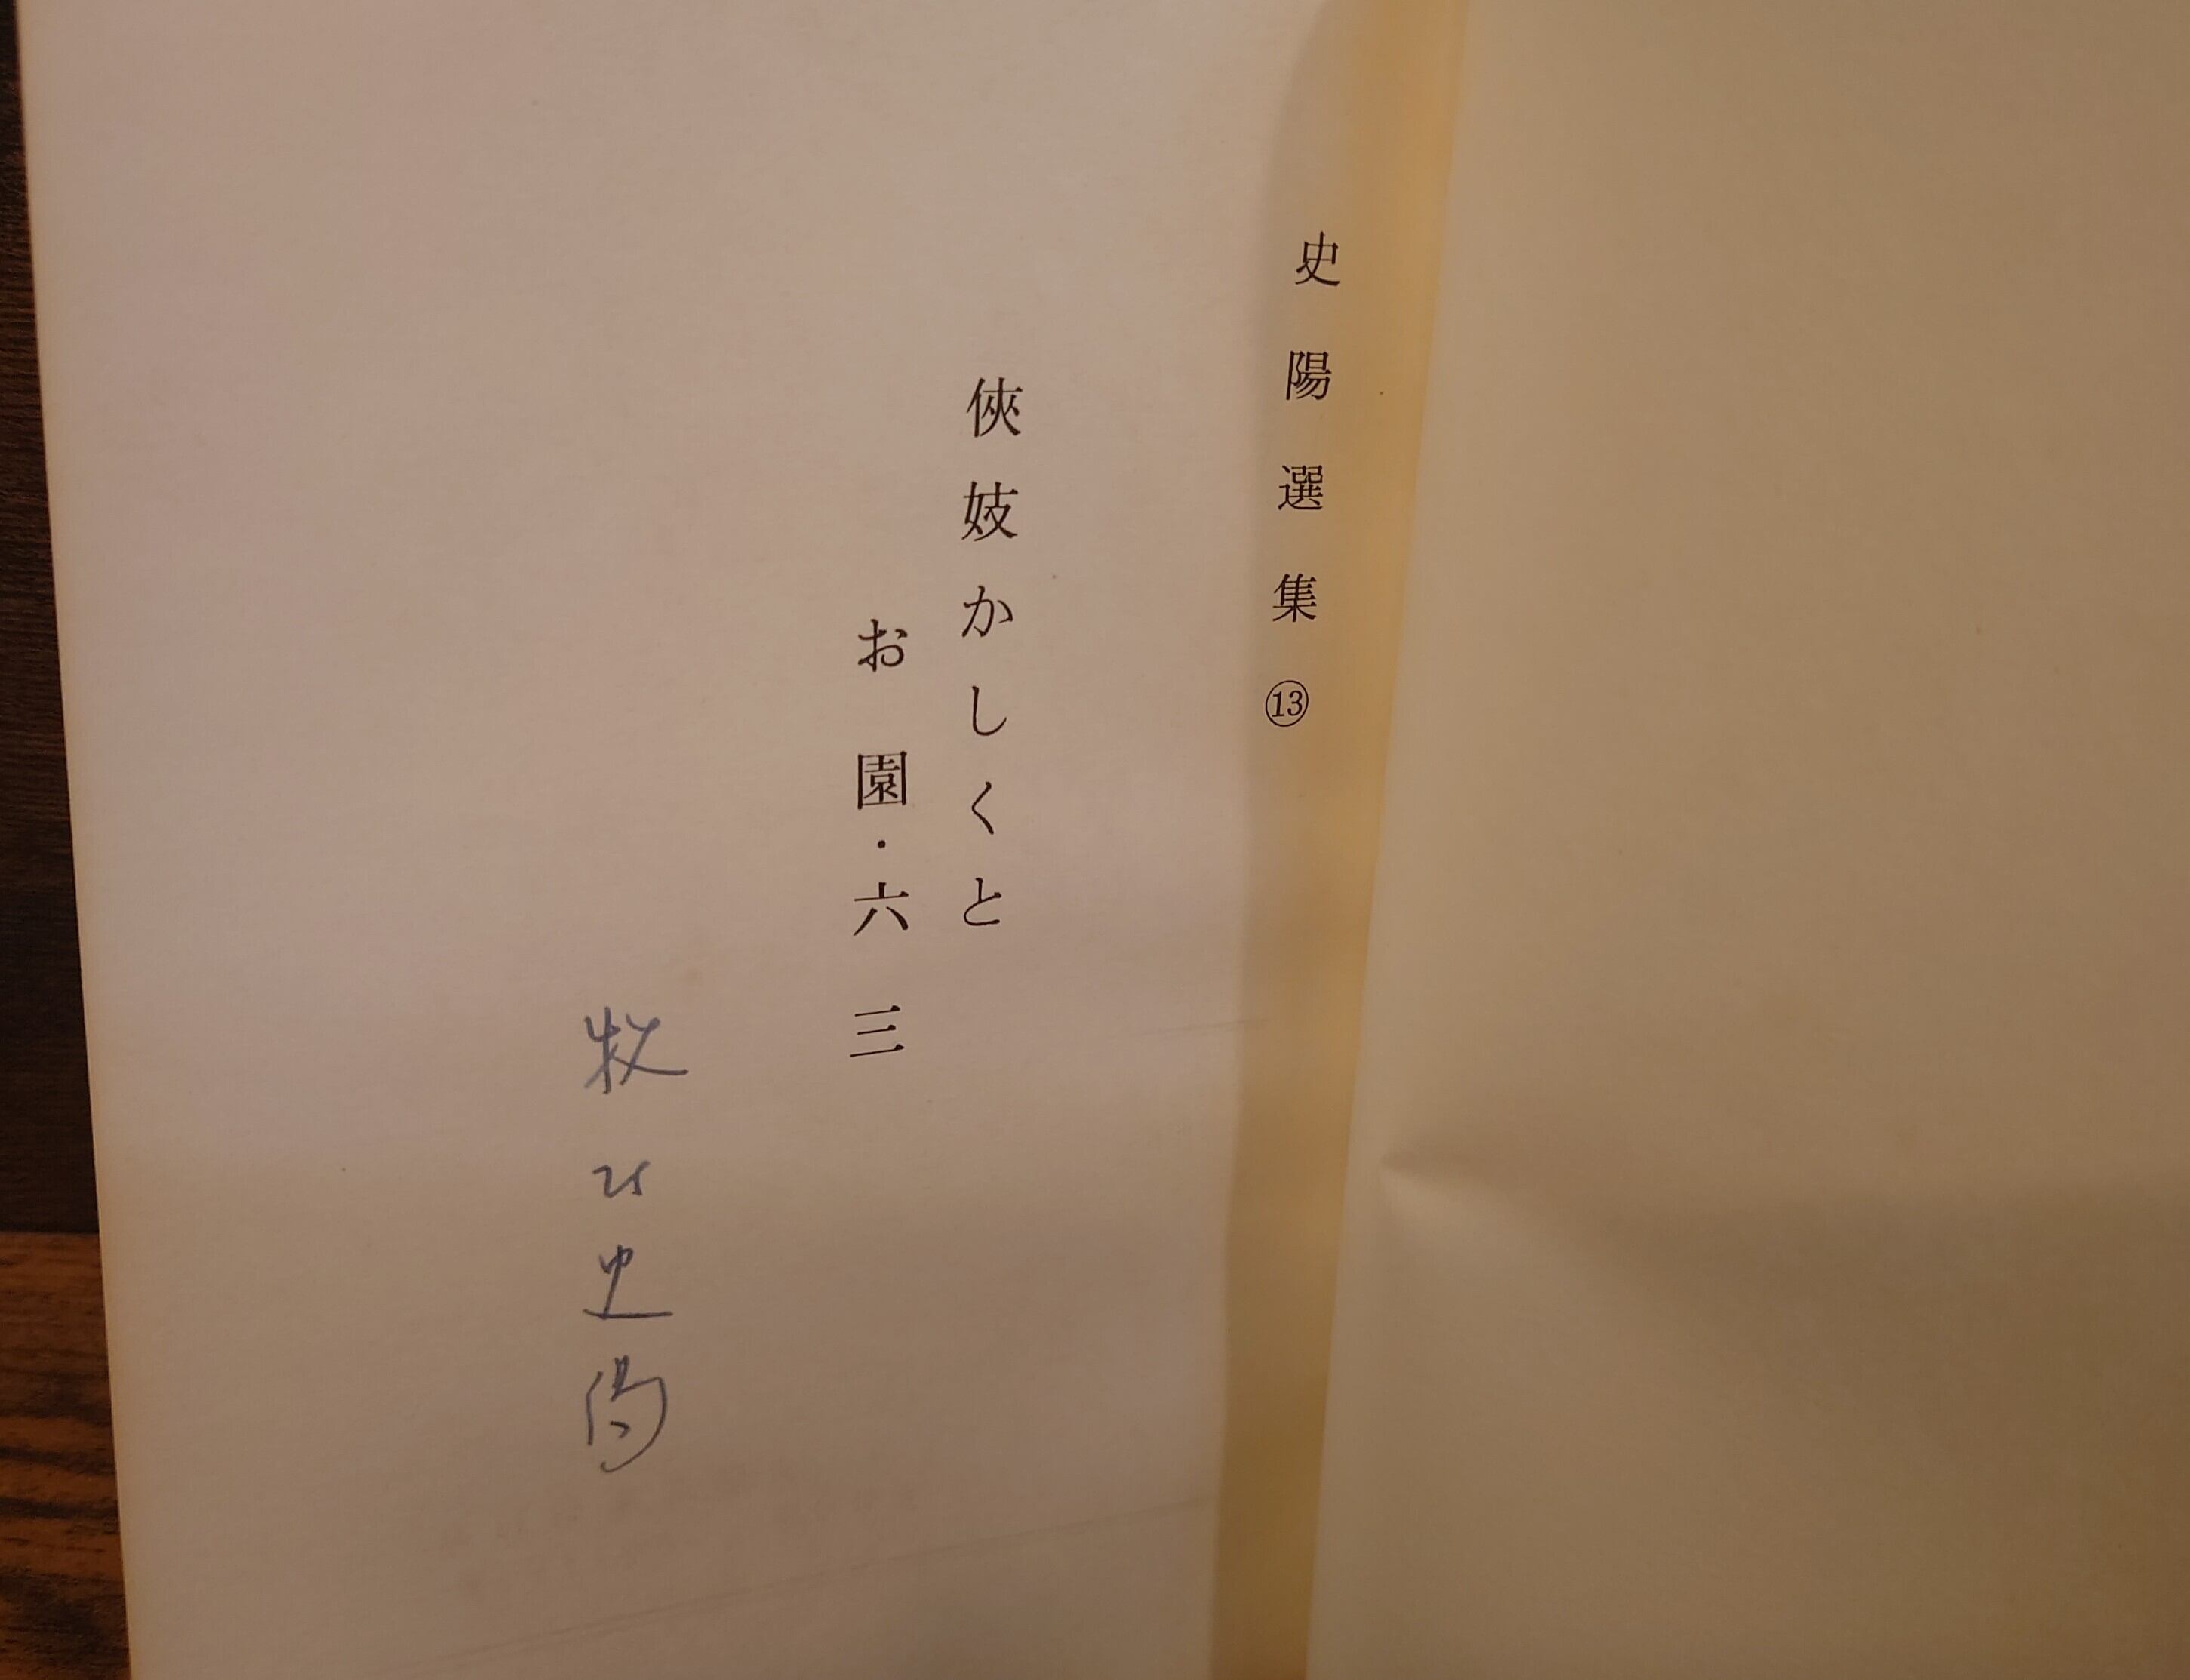 史陽選集⑬
俠妓かしくと
お園・六三
牧村史陽